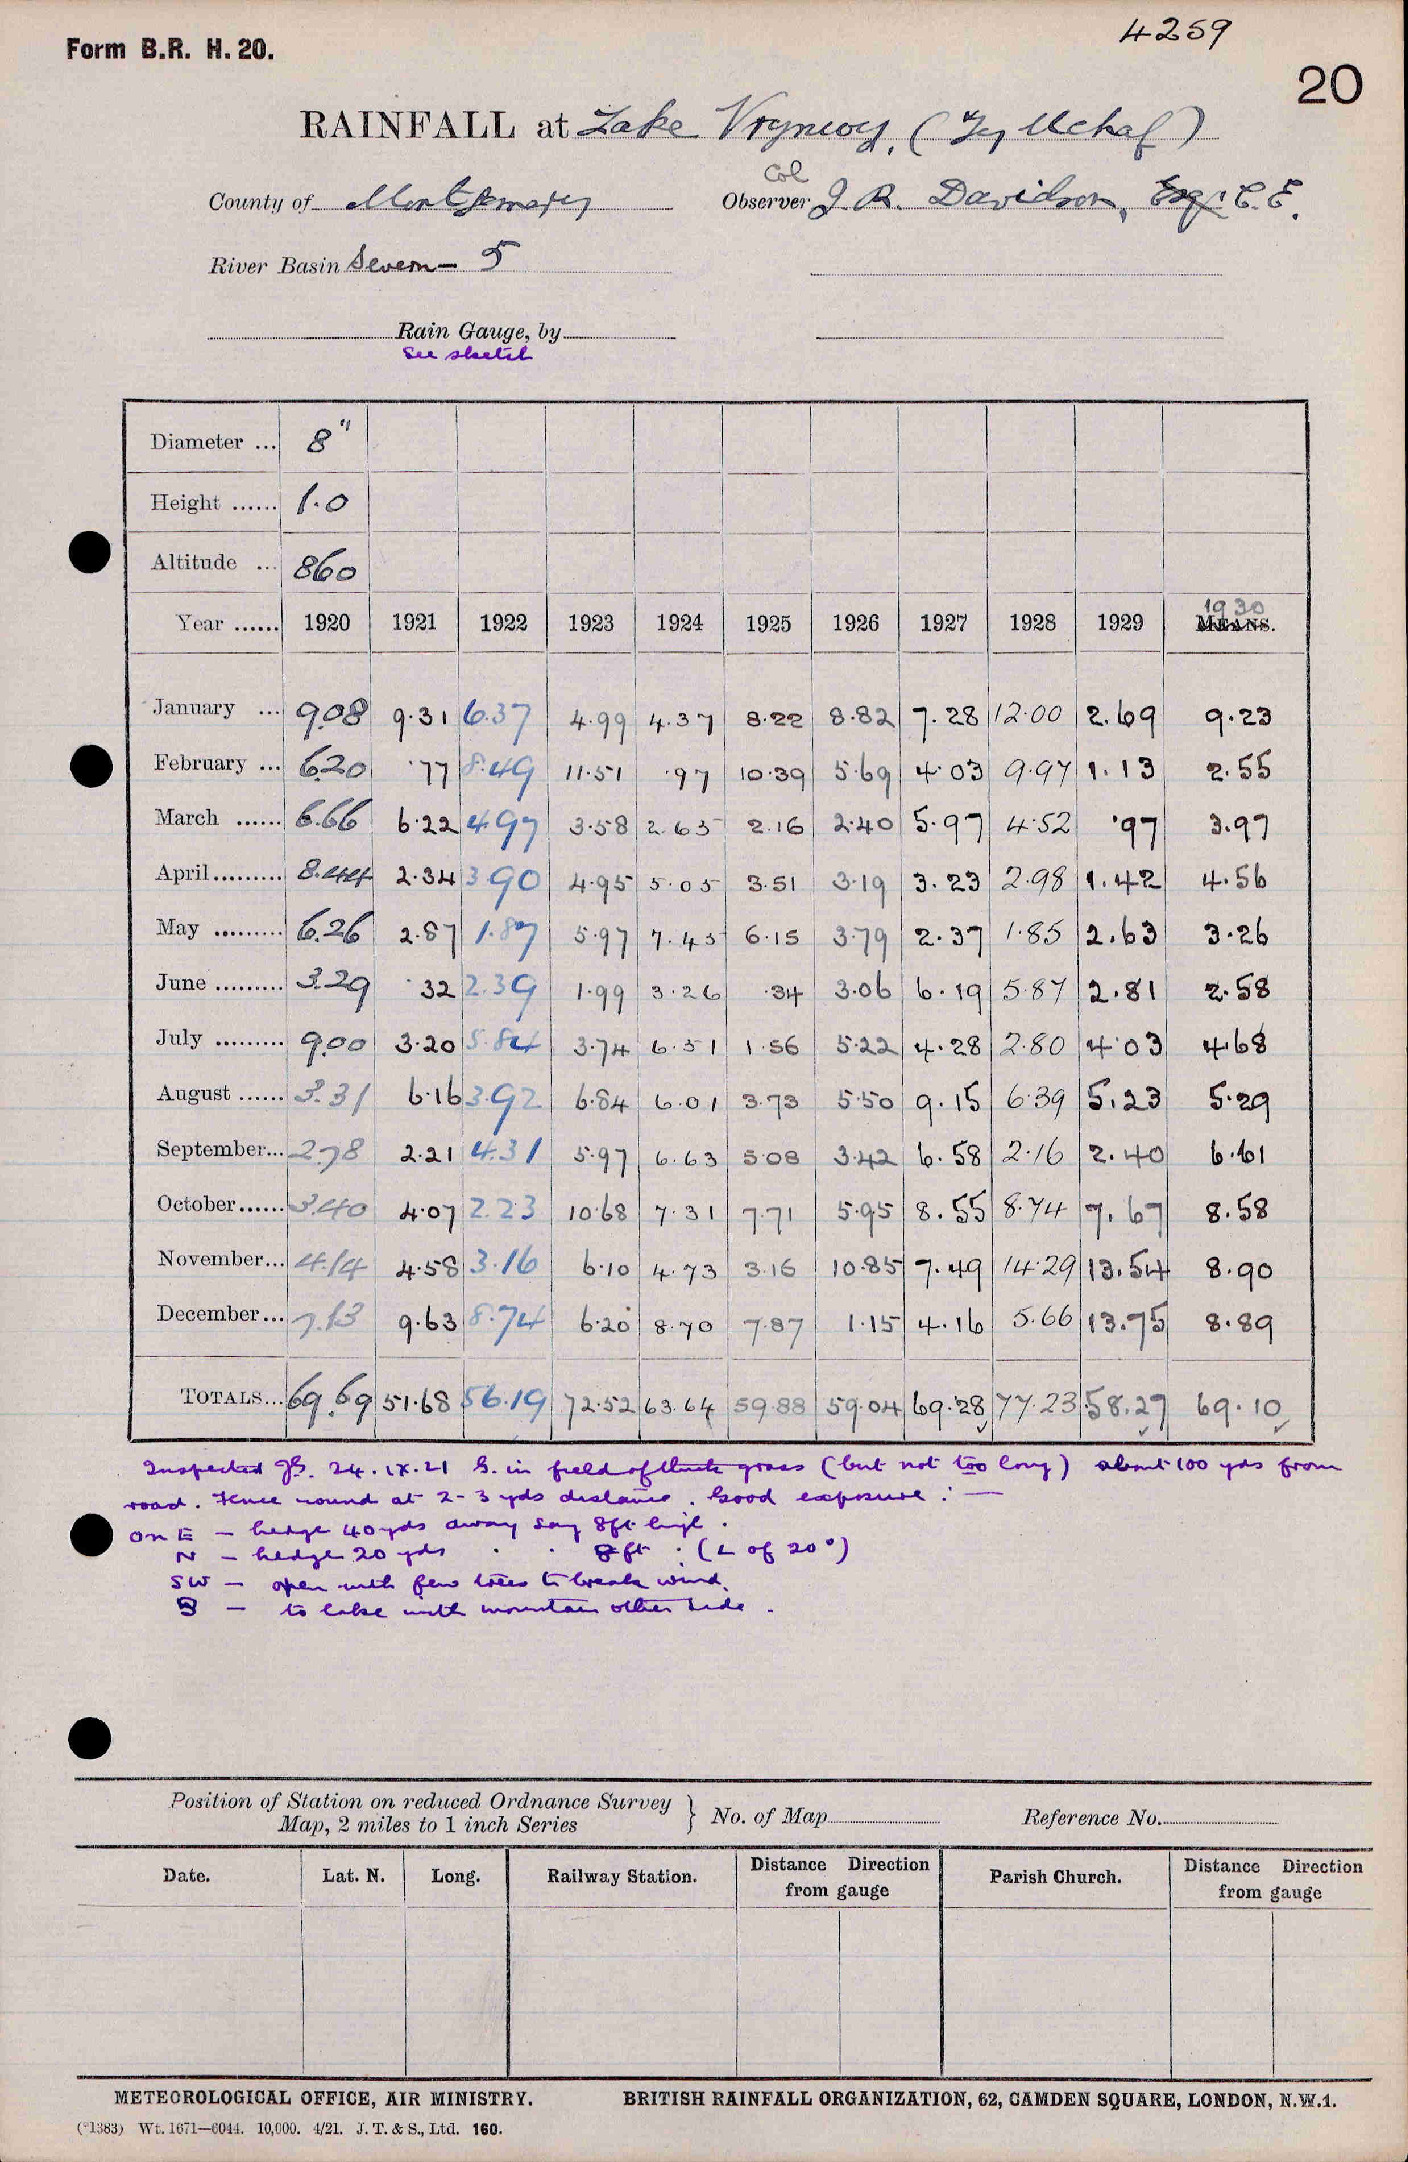 4259
Form B.R. H. 20.
20
RAINFALL at Lake Vrynwy, (Ty Uchaf)
Col
County of Montgomery Observer J R. Davidson, Esq. C.E.
River Basin Severn - 5
Rain Gauge, by
See sketch
Diameter ... 8"
Height ...... 1.0
Altitude ... 860
1930
Year ...... 1920 1921 1922 1923 1924 1925 1926 1927 1928 1929 MEANS.
January ... 9.08 9.31 6.37 4.99 4.37 8.22 8.82 7.28 12.00 2.69 9.23
February ... 6.20 .77 8.49 11.51 .97 10.39 5.69 4.03 9.97 1.13 2.55
March ...... 6.66 6.22 4.97 3.58 2.63 2.16 2.40 5.97 4.52 .97 3.97
April......... 8.44 2.34 3.90 4.95 5.05 3.51 3.19 3.23 2.98 1.42 4.56
May ......... 6.26 2.87 1.87 5.97 7.45 6.15 3.79 2.37 1.85 2.63 3.26
June ......... 3.29 .32 2.39 1.99 3.26 .34 3.06 6.19 5.87 2.81 2.58
July ......... 9.00 3.20 5.84 3.74 6.51 1.56 5.22 4.28 2.80 4.03 4.68
August ...... 3.31 6.16 3.92 6.84 6.01 3.73 5.50 9.15 6.39 5.23 5.29
September... 2.78 2.21 4.31 5.97 6.63 5.08 3.42 6.58 2.16 2.40 6.61
October...... 3.40 4.07 2.23 10.68 7.31 7.71 5.95 8.55 8.74 7.67 8.58
November... 4.14 4.58 3.16 6.10 4.73 3.16 10.85 7.49 14.29 13.54 8.90
December... 7.13 9.63 8.74 6.20 8.70 7.87 1.15 4.16 5.66 13.75 8.89
TOTALS... 69.69 51.68 56.19 72.52 63.64 59.88 59.04 69.28 77.23 58.27 69.10
Inspected 24.IX.21 G. in field of thick grass (but not too long) about 100 yds from
road. Fence round at 2-3 yds distance. Good exposure: —
on E — hedge 40 yds away say 8ft high.
N — hedge 20 yds . . 8ft . (L of 20°)
SW — open with few trees to break wind.
S — to lake with mountain other side.
Position of Station on reduced Ordnance Survey
Map, 2 miles to 1 inch Series } No. of Map Reference No.
Date. Lat. N. Long. Railway Station. Distance Direction from gauge Parish Church. Distance Direction from gauge
METEOROLOGICAL OFFICE, AIR MINISTRY. BRITISH RAINFALL ORGANIZATION, 62, CAMDEN SQUARE, LONDON, N.W.1.
(*1383) Wt. 1671—6044. 10,000. 4/21. J. T. & S., Ltd. 160.